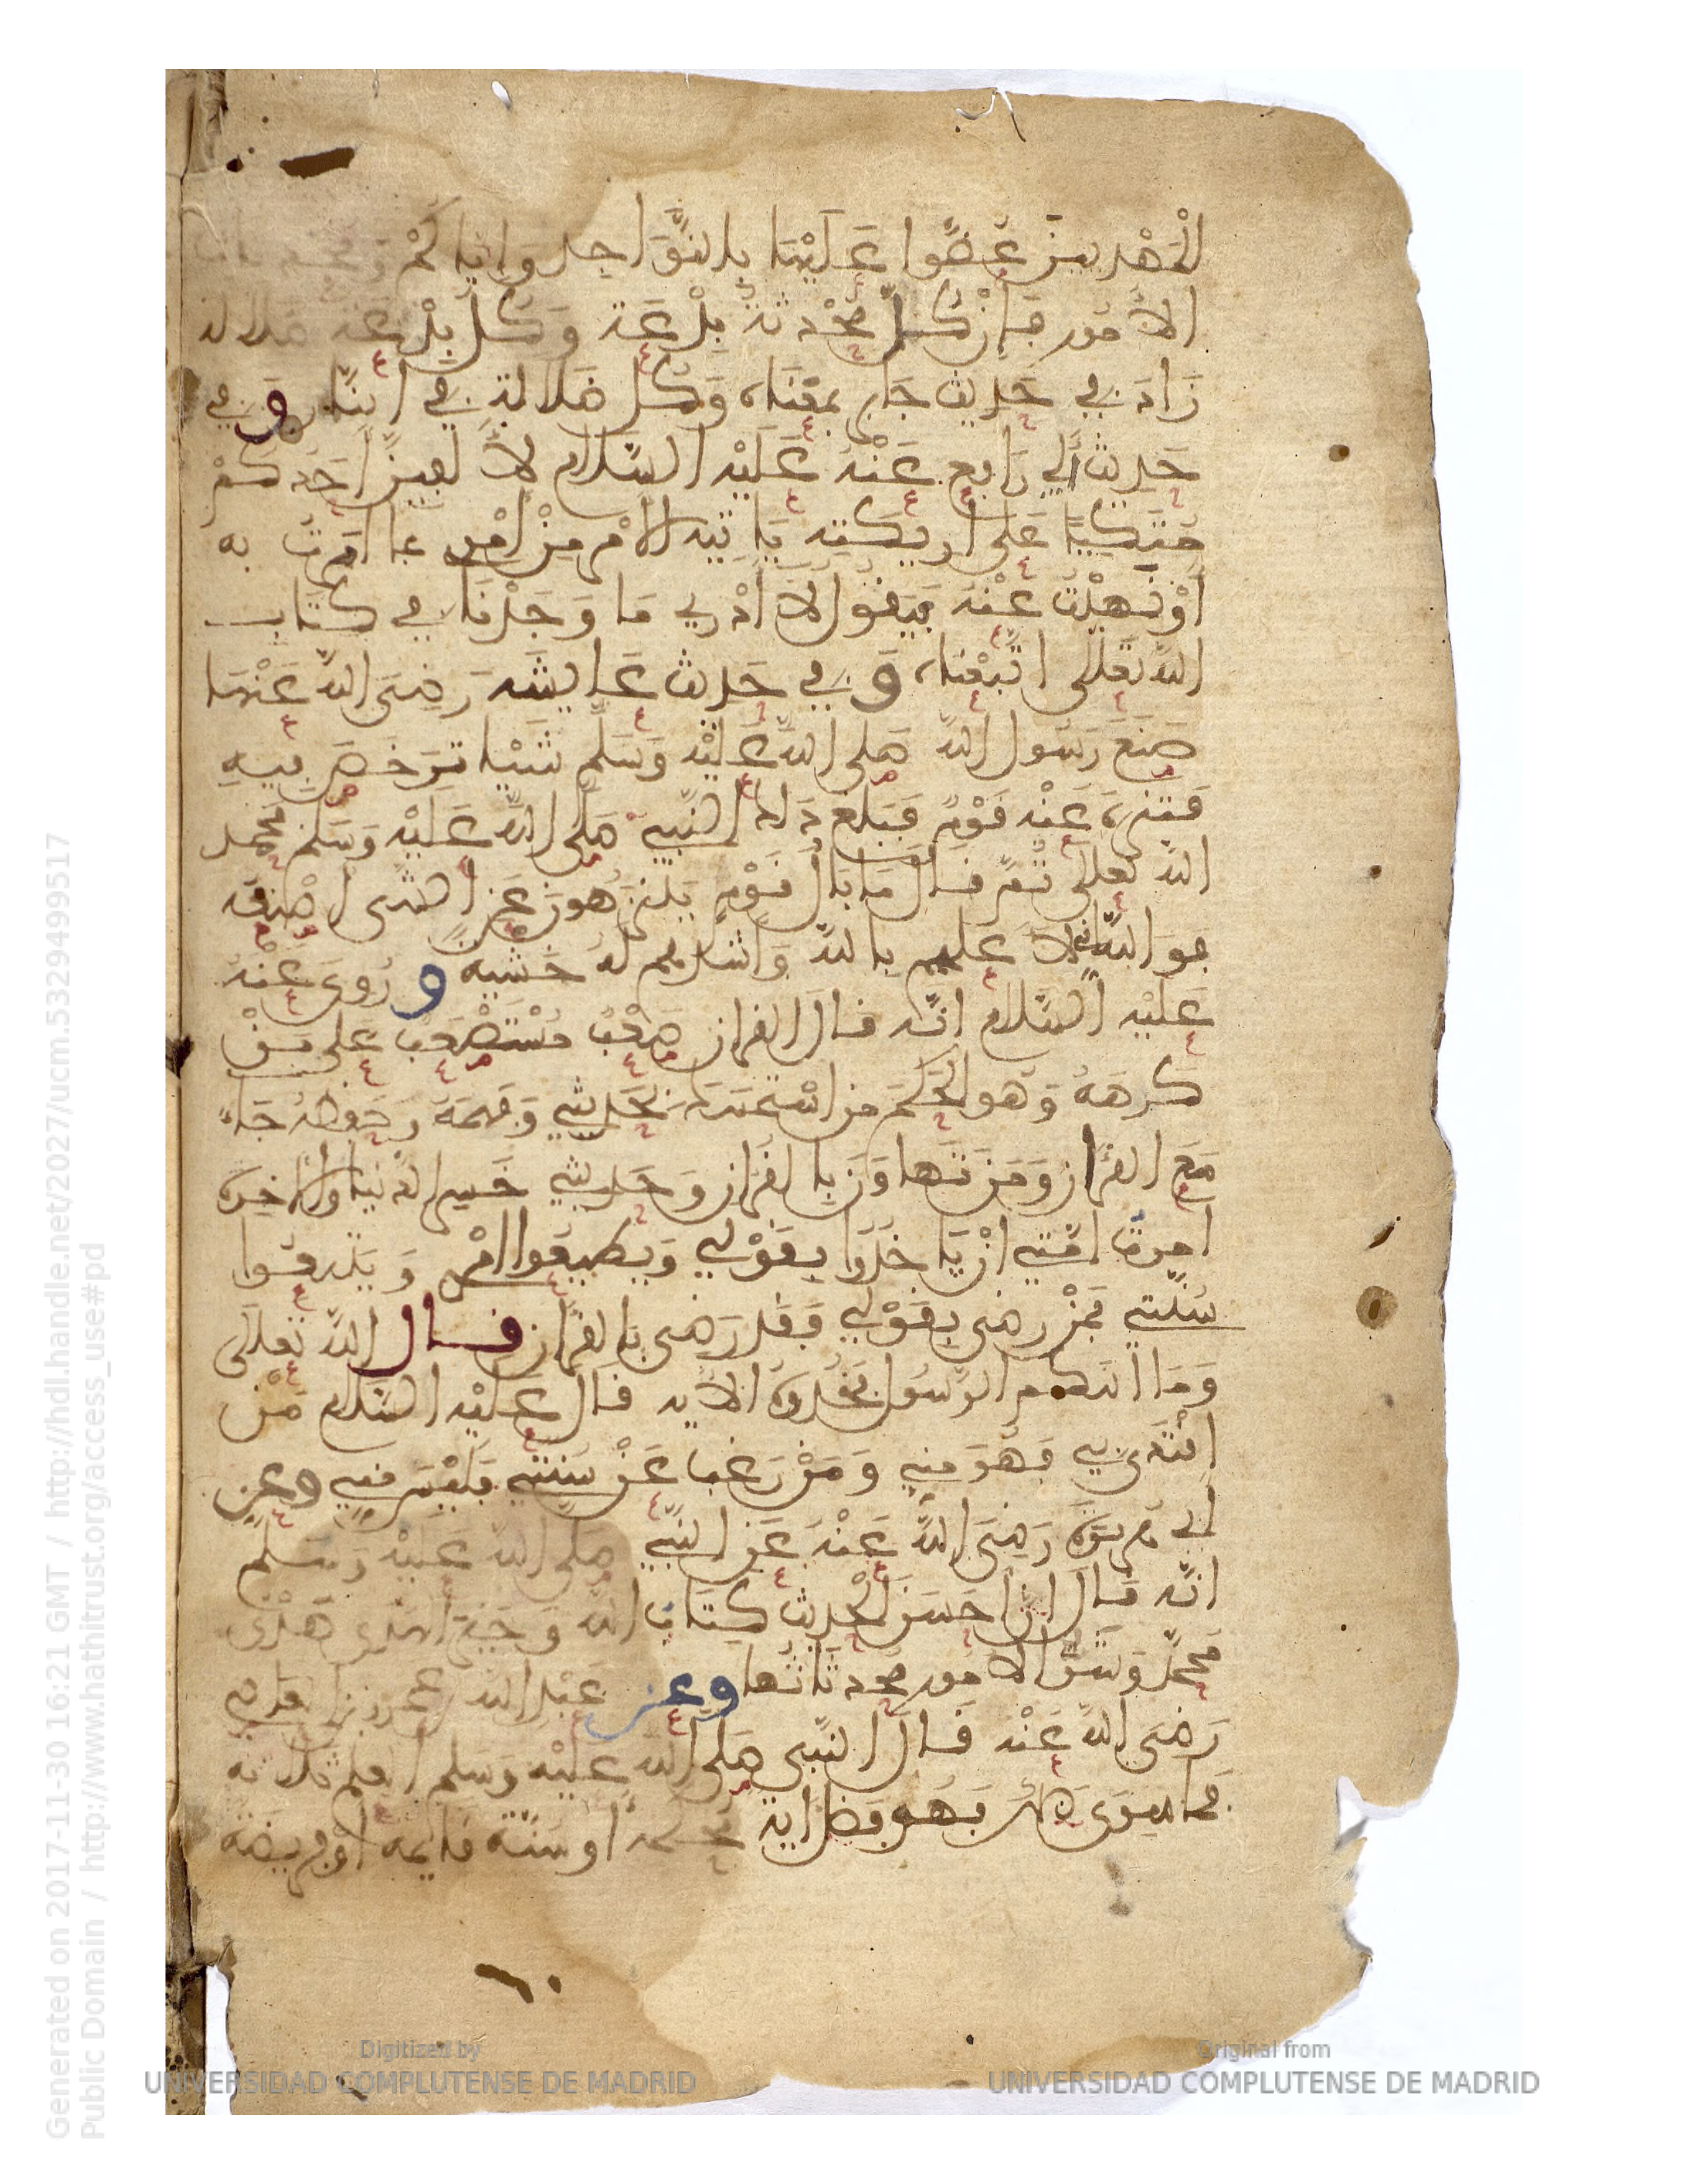 الْمَهْدِيِّينَ عَضُّوا عَلَيْهَا بِالنَّوَاجِذِ وَإِيَّاكُمْ وَمُحْدَثَاتِ
الأُمُورِ فَإِنَّ كُلَّ مُحْدَثَةٍ بِدْعَةٌ وَكُلَّ بِدْعَةٍ ضَلَالَةٌ
زَادَ فِي حَدِيثِ جَابِرٍ بِمَعْنَاهُ وَكُلُّ ضَلَالَةٍ فِي النَّارِ وَفِي
حَدِيثِ أَبِي رَافِعٍ عَنْهُ عَلَيْهِ السَّلَامُ لَا أُلْفِيَنَّ أَحَدَكُمْ
مُتَّكِيًا عَلَى أَرِيكَتِهِ يَأْتِيهِ الْأَمْرُ مِنْ أَمْرِي مِمَّا أَمَرْتُ بِهِ
أَوْ نَهَيْتُ عَنْهُ فَيَقُولُ لَا أَدْرِي مَا وَجَدْنَا فِي كِتَابِ
اللَّهِ تَعَالَى اتَّبَعْنَاهُ وَفِي حَدِيثِ عَايِشَةَ رَضِيَ اللَّهُ عَنْهَا
صَنَعَ رَسُولُ اللَّهِ صَلَّى اللَّهُ عَلَيْهِ وَسَلَّمَ شَيْئًا تَرَخَّصَ فِيهِ
فَتَنَزَّهَ عَنْهُ قَوْمٌ فَبَلَغَ ذَلِكَ النَّبِيَّ صَلَّى اللَّهُ عَلَيْهِ وَسَلَّمَ فَحَمِدَ
اللَّهَ تَعَالَى ثُمَّ قَالَ مَا بَالُ قَوْمٍ يَتَنَزَّهُونَ عَنِ الشَّيْءِ أَصْنَعُهُ
فَوَاللَّهِ إِنِّي لَأَعْلَمُهُمْ بِاللَّهِ وَأَشَدُّهُمْ لَهُ خَشْيَةً وَرُوِيَ عَنْهُ
عَلَيْهِ السَّلَامُ أَنَّهُ قَالَ الْقُرْآنُ صَعْبٌ مُسْتَصْعَبٌ عَلَى مَنْ
كَرِهَهُ وَهُوَ الْحَكَمُ مَنِ اسْتَمْسَكَ بِحَدِيثِي وَفَهِمَهُ وَحَفِظَهُ جَاءَ
مَعَ الْقُرْآنِ وَمَنْ تَهَاوَنَ بِالْقُرْآنِ وَحَدِيثِي خَسِرَ الدُّنْيَا وَالْآخِرَةَ
أُمِرَتْ أُمَّتِي أَنْ يَأْخُذُوا بِقَوْلِي وَيُطِيعُوا أَمْرِي وَيَتَّبِعُوا
سُنَّتِي فَمَنْ رَضِيَ بِقَوْلِي فَقَدْ رَضِيَ بِالْقُرْآنِ قَالَ اللَّهُ تَعَالَى
وَمَا آتَاكُمُ الرَّسُولُ فَخُذُوهُ الْآيَةَ قَالَ عَلَيْهِ السَّلَامُ مَنِ
اقْتَدَى بِي فَهُوَ مِنِّي وَمَنْ رَغِبَ عَنْ سُنَّتِي فَلَيْسَ مِنِّي وَعَنْ
أَبِي هُرَيْرَةَ رَضِيَ اللَّهُ عَنْهُ عَنِ النَّبِيِّ صَلَّى اللَّهُ عَلَيْهِ وَسَلَّمَ
أَنَّهُ قَالَ إِنَّ أَحْسَنَ الْحَدِيثِ كِتَابُ اللَّهِ وَخَيْرَ الْهَدْيِ هَدْيُ
مُحَمَّدٍ وَشَرَّ الْأُمُورِ مُحْدَثَاتُهَا وَعَنْ عَبْدِ اللَّهِ بْنِ عَمْرِو بْنِ الْعَاصِي
رَضِيَ اللَّهُ عَنْهُ قَالَ النَّبِيُّ صَلَّى اللَّهُ عَلَيْهِ وَسَلَّمَ الْعِلْمُ ثَلَاثَةٌ
فَمَا سِوَى ذَلِكَ فَهُوَ فَضْلٌ آيَةٌ مُحْكَمَةٌ أَوْ سُنَّةٌ قَائِمَةٌ أَوْ فَرِيضَةٌ
Generated on 2017-11-30 16:21 GMT / http://hdl.handle.net/2027/ucm.5329499517
Public Domain / http://www.hathitrust.org/access_use#pd
Digitized by
UNIVERSIDAD COMPLUTENSE DE MADRID
Original from
UNIVERSIDAD COMPLUTENSE DE MADRID